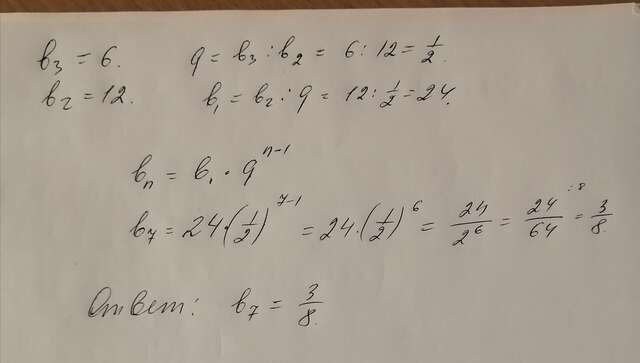 b₃ = 6. q = b₃ : b₂ = 6 : 12 = 1/2.
b₂ = 12. b₁ = b₂ : q = 12 : 1/2 = 24.
bₙ = b₁ · q^(n-1)
b₇ = 24 · (1/2)^(7-1) = 24 · (1/2)^6 = 24/2^6 = 24/64 :8 = 3/8.
Ответ: b₇ = 3/8.